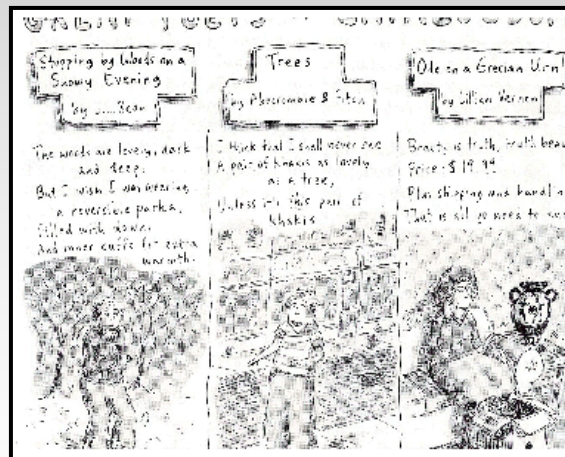 Stopping by Woods on a
Snowy Evening
by L.L. Bean
The woods are lovely, dark
and deep,
But I wish I was wearing
a reversible parka,
Filled with down,
and inner cuffs for extra
warmth.
Trees
by Abercrombie & Fitch
I think that I shall never see
A pair of khakis as lovely
as a tree,
Unless it's this pair of
khakis
Ode on a Grecian Urn
by Lillian Vernon
Beauty is truth, truth beau
Price: $19.99
Plus shipping and handlin
That is all ye need to